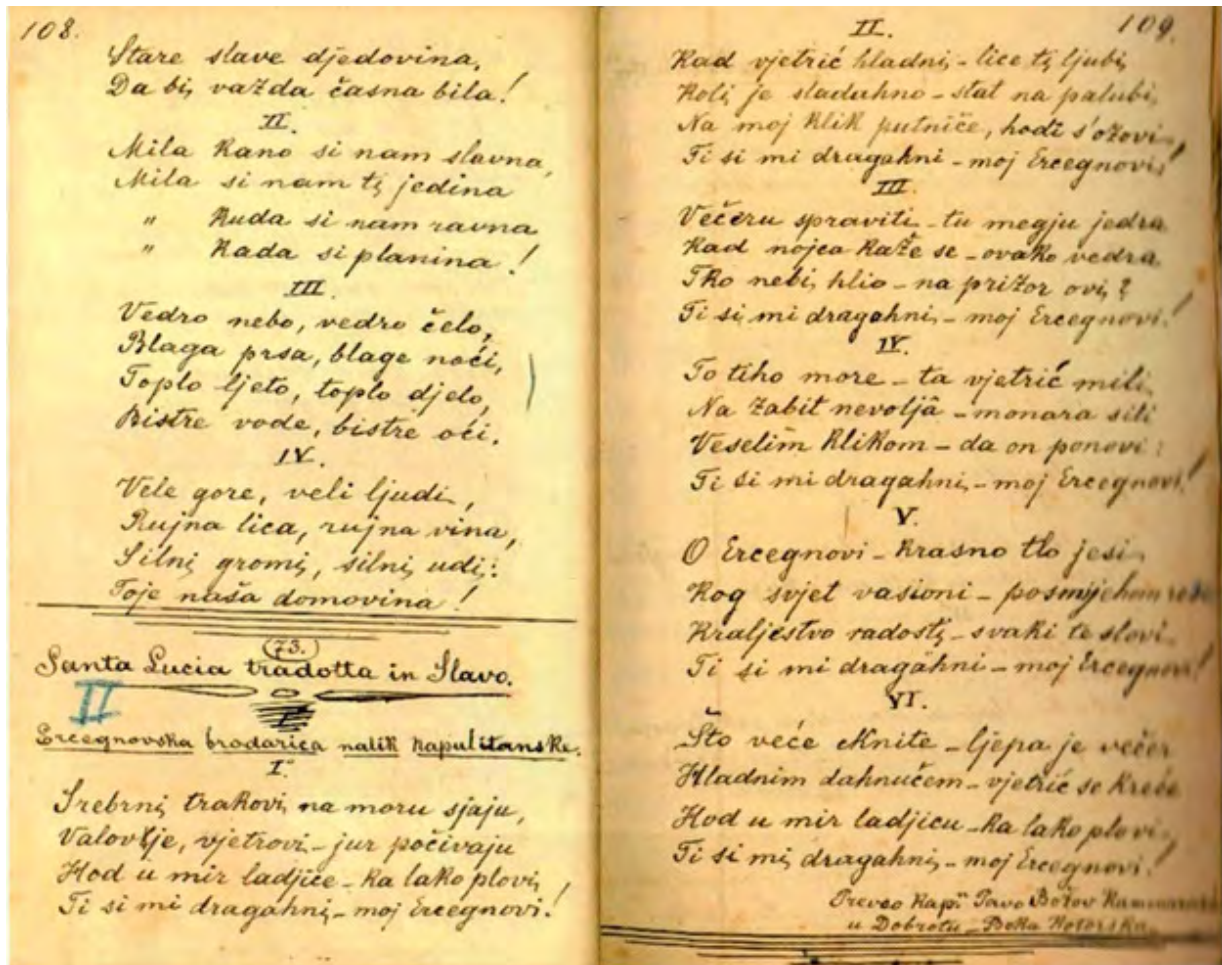 108.
Stare slave djedovina,
Da bi važda časna bila!
II.
Mila Kano si nam slavna,
Mila si nam ti jedina
" Kuda si nam ravna
" Kada si planina!
III.
Vedro nebo, vedro čelo,
Blaga prsa, blage noći,
Toplo ljeto, toplo djelo,
Bistre vode, bistre oći.
IV.
Vele gore, veli ljudi,
Rujna lica, rujna vina,
Silni gromi, silni udi:
Toje naša domovina!
73.
Santa Lucia tradotta in Slavo.
II
Ercegnovska brodarica nalik napulitanske.
I.
Srebrni trakovi na moru sjaju,
Valovlje, vjetrovi - jur počivaju
Hod u mir ladjice - ka lako plovi,
Ti si mi dragahni - moj Ercegnovi!
109.
II.
Kad vjetrić hladni - lice ti ljubi,
Koli je sladuhno - stat na palubi,
Na moj klik putniče, hodi s'ozovi,
Ti si mi dragahni - moj Ercegnovi!
III.
Večeru spraviti - tu megju jedra
Kad nojca kaže se - ovako vedra
Tko nebi htio - na prizor ovi?
Ti si mi dragahni - moj Ercegnovi!
IV.
To tiho more - ta vjetrić mili
Na zabit nevoljâ - monara sili
Veselim klikom - da on ponovi:
Ti si mi dragahni - moj Ercegnovi!
V.
O Ercegnovi - krasno tlo jesi
Kog svjet vasioni - posmijehom
Kraljestvo radosti - svaki te slovi
Ti si mi dragahni - moj Ercegnovi!
VI.
Što veće - ljepa je večer
Hladnim dahnućem - vjetrić se kreće
Hod u mir ladjicu - ka lako plovi,
Ti si mi dragahni - moj Ercegnovi!
Preveo Kapī Pavo Božov
u Dobrotu - Boka Kotorska